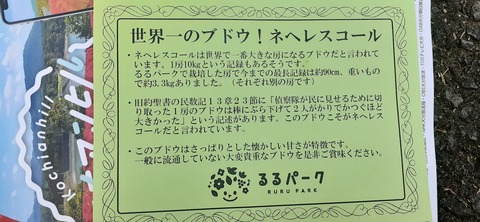 世界一のブドウ！ネヘレスコール
・ネヘレスコールは世界で一番大きな房になるブドウだと言われて
います。1房10kgという記録もあるそうです。
るるパークで栽培した房で今までの最長記録は約90cm、重いもの
で約3.3kgありました。（それぞれ別の房です）
・旧約聖書の民数記１３章２３節に「偵察隊が民に見せるために切
り取った１房のブドウは棒にぶら下げて２人がかりでかつぐほど
大きかった」という記述があります。このブドウこそがネヘレス
コールだと言われています。
・このブドウはさっぱりとした懐かしい甘さが特徴です。
一般に流通していない大変貴重なブドウを是非ご賞味ください。
るるパーク
RURU PARK
tochianhill